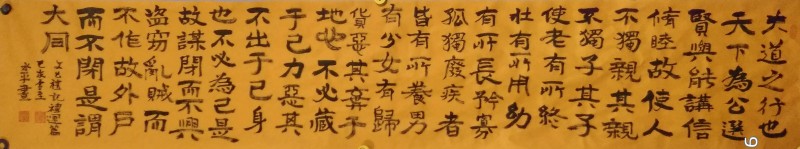 大道之行也
天下為公選
賢與能講信
脩睦故使人
不獨親其親
不獨子其子
使老有所終
壯有所用幼
有所長矜寡
孤獨廢疾者
皆有所養男
有分女有歸
貨惡其棄于
地也不必藏
于己力惡其
不出于己身
也不必為己是
故謀閉而不興
盜竊亂賊而
不作故外戶
而不閉是謂
大同
禮記禮運篇